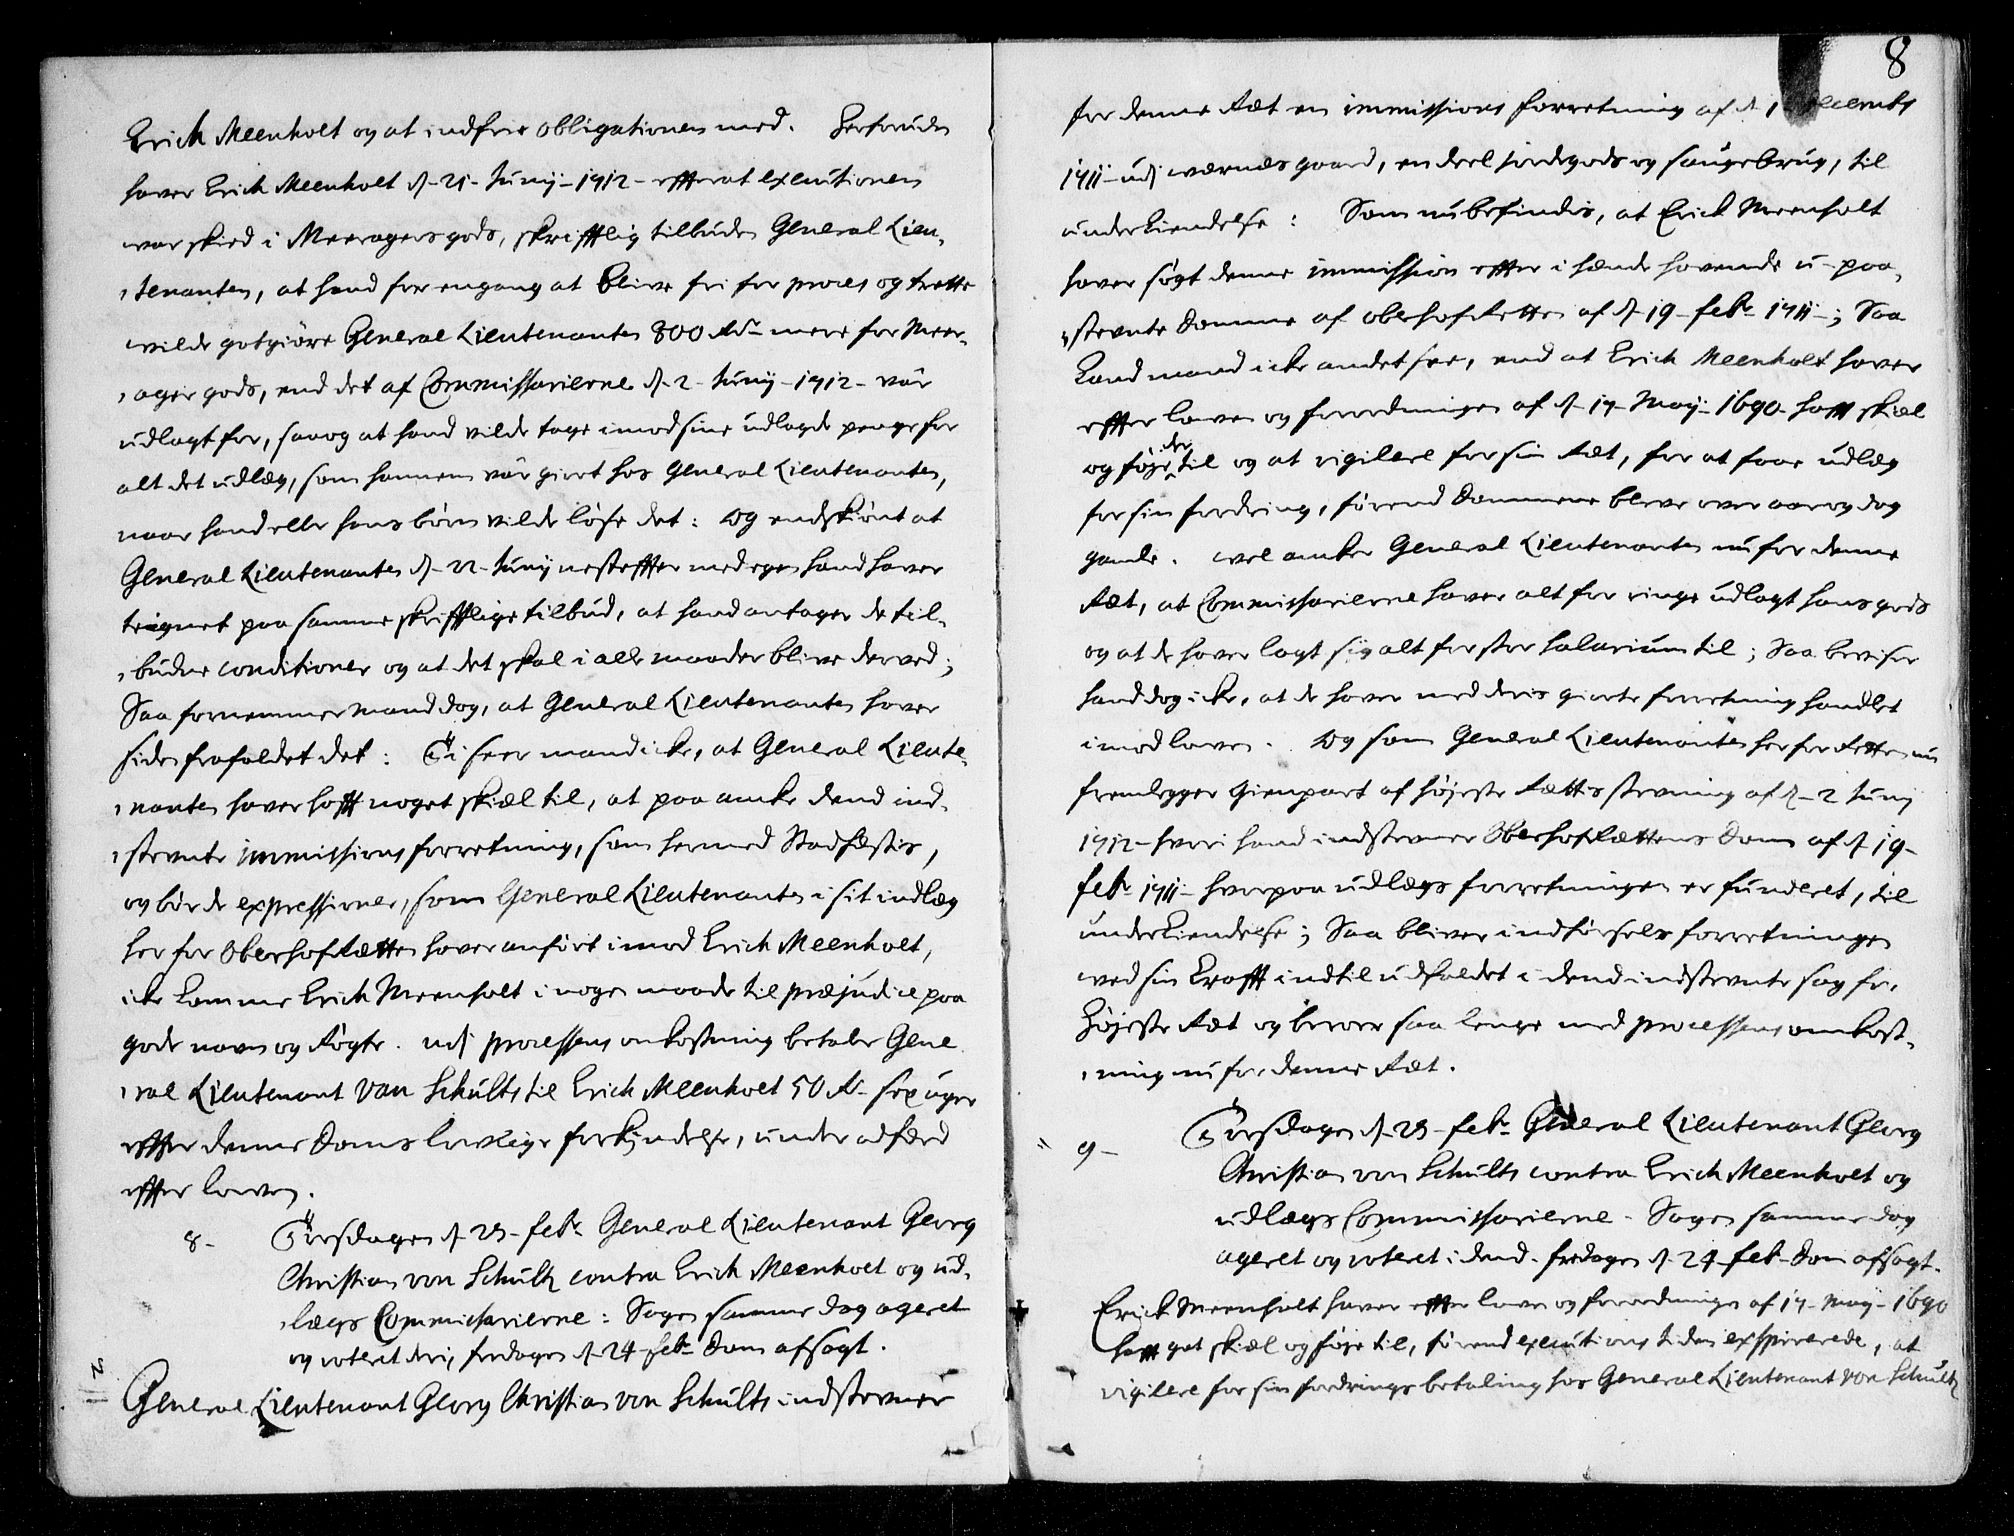 Erich Meenholt og at indfrie obligationen med. Herforuden
haver Erich Meenholt d. 21. Junij 1712 effter at executionen
war skied i Meeragers gods, skrifftlig tilbuden General Lieu-
tenanten, at hand for engang at blive fri for proces og trette
wilde gotgiøre General Lieutenanten 800 Rdr mere for Meer-
ager gods, end det af Commissarierne d. 2. Junij 1712 var
udlagt for, saa og at hand vilde tage imod sine udlagde penge for
alt det udlæg, som hannem var giort hos General Lieutenanten,
naar hand eller hans børn vilde løse det: Og endskiønt at
General Lieutenanten d. 22. Junij nesteffter med egen hand haver
teignet paa samme skrifftlige tilbud, at hand antager de til-
budne conditioner og at det skal i alle maader blive derved;
Saa fornemmer mand dog, at General Lieutenanten haver
siden frafaldet det: Ti seer mand icke, at General Lieute-
nanten haver hafft noget skiæl til, at paa ancke dend ind-
stevnte immissions forretning, som hermed Stadfæstis,
og bør de expressioner, som General Lieutenanten i sit indlæg
her for OberhofRætten haver anført imod Erich Meenholt,
icke komme Erich Meenholt i nogen maade til præjudice paa
gode navn og Rygte. udj processens omkostning betaler Gene
ral Lieutenant von Schults til Erich Meenholt 50 Rdr sex uger
effter denne Doms lovlige forkyndelse, under adfærd
effter loven.
8. Tirsdagen d. 23. febr. General Lieutenant Georg
Christian von Schultz contra Erich Meenholt og ud-
lægs Commissarierne: Sagen samme dag ageret
og voteret deri, fredagen d. 24 febr. Dom afsagt.
General Lieutenant Georg Christian von Schults indstevner
8
for denne Ræt en immissions forretning af d. 1
1711 udj wærnæs gaard, en deel jordegods og saugebrug, til
underkiendelse: Som nu befindis, at Erich Meenholt
haver søgt denne immission effter i hænde havende u-paa-
stevnte Domme af OberhofRetten af d. 19 febr. 1711; Saa
kand mand icke andet see, end at Erich Meenholt haver
effter loven og forordningen af d. 17. Maij 1690 hafft skiæl
og føje der til og at vigilere for sin Ræt, for at faae udlæg
for sin fordring, førend Dommene bleve over aar og dag
gamle. Wel ancker General Lieutenanten nu for denne
Ræt, at Commissarierne haver alt for ringe udlagt hans gods
og at de haver lagt sig alt for stor Salarium til; Saa beviser
hand dog icke, at de haver med deris giorte forretning handlet
imod loven. Og som General Lieutenanten her for Retten nu
fremlegger Gienpart af højeste Rættis stevning af d. 2 Junij
1712 hvori hand indstevner OberhofRættens Dom af d. 19
febr. 1711 hvorpaa udlægs forretningen er funderet, til
underkiendelse; Saa bliver indførsels forretningen
ved sin krafft indtil udfaldet i dend indstevnte sag for
Højeste Ræt og beroer saa lenge med processens omkost-
ning nu for denne Ræt.
9 Tirsdagen d. 23. febr. General Lieutenant Georg
Christian von Schults contra Erich Meenholt og
udlægs Commissarierne. Sagen samme dag
ageret og voteret i dend. fredagen d. 24 feb. Dom afsagt.
Erich Meenholt haver effter loven og forordningen af 17. Maij 1690
hafft got skiæl og føje til, førend executions tiden exspirerede, at
vigilere for sin fordrings betaling hos General Lieutenant von Schultz